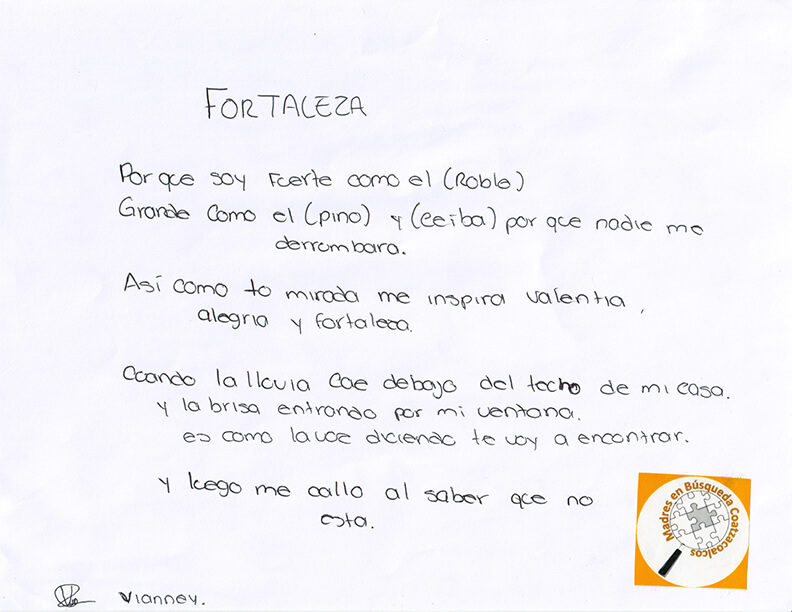 FORTALEZA
Por que soy Fuerte como el (Roble)
Grande como el (pino) y (ceiba) por que nadie me
derrumbara.
Así como tu mirada me inspira valentia,
alegria y fortaleza.
Cuando la lluvia cae debajo del techo de mi casa.
y la brisa entrando por mi ventana.
es como la voz diciendo te voy a encontrar.
y luego me callo al saber que no
esta.
Madres en Búsqueda Coatzacoalcos
Vianney.